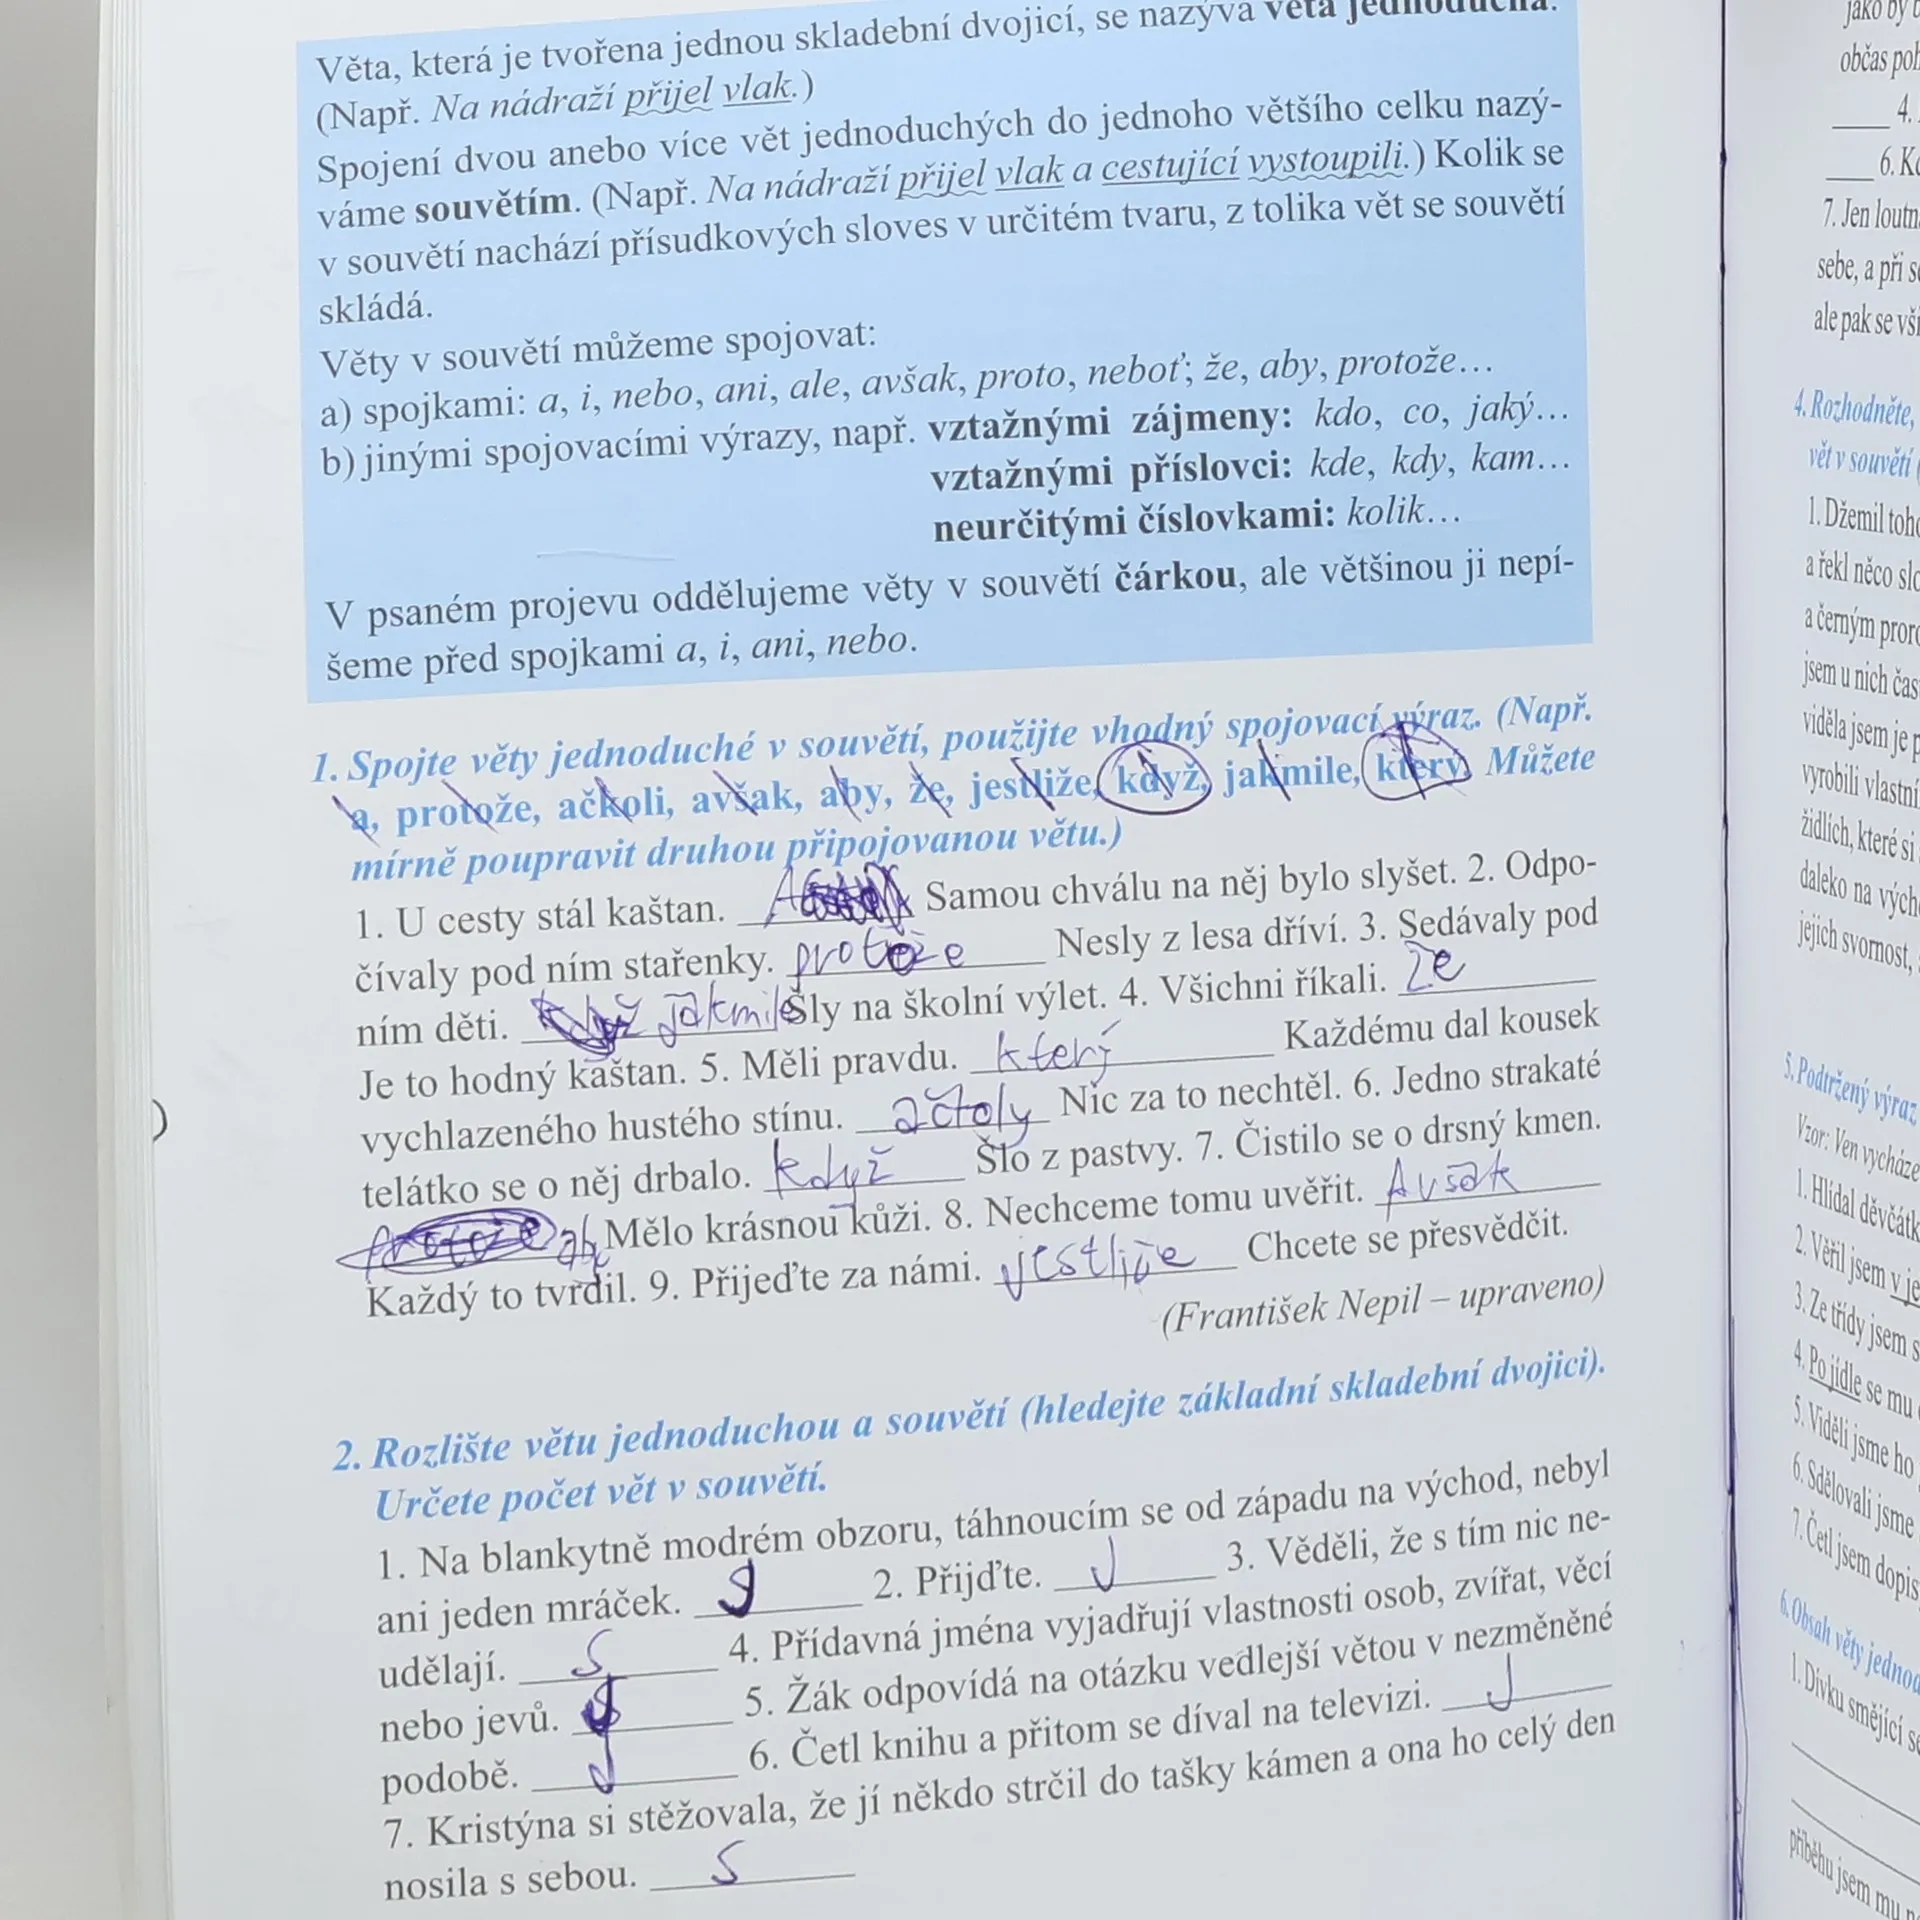 Věta, která je tvořena jednou skladební dvojicí, se nazývá věta jednoduchá.
(Např. Na nádraží přijel vlak.)
Spojení dvou anebo více vět jednoduchých do jednoho většího celku nazý-
váme souvětím. (Např. Na nádraží přijel vlak a cestující vystoupili.) Kolik se
v souvětí nachází přísudkových sloves v určitém tvaru, z tolika vět se souvětí
skládá.
Věty v souvětí můžeme spojovat:
a) spojkami: a, i, nebo, ani, ale, avšak, proto, neboť; že, aby, protože...
b) jinými spojovacími výrazy, např. vztažnými zájmeny: kdo, co, jaký...
vztažnými příslovci: kde, kdy, kam...
neurčitými číslovkami: kolik...
V psaném projevu oddělujeme věty v souvětí čárkou, ale většinou ji nepí-
šeme před spojkami a, i, ani, nebo.
1. Spojte věty jednoduché v souvětí, použijte vhodný spojovací výraz. (Např.
a, protože, ačkoli, avšak, aby, že, jestliže, když, jakmile, který. Můžete
mírně poupravit druhou připojovanou větu.)
1. U cesty stál kaštan. Samou chválu na něj bylo slyšet. 2. Odpo-
čívaly pod ním stařenky. protože Nesly z lesa dříví. 3. Sedávaly pod
ním děti. když jakmile Šly na školní výlet. 4. Všichni říkali. že
Je to hodný kaštan. 5. Měli pravdu. který Každému dal kousek
vychlazeného hustého stínu. ačtoly Nic za to nechtěl. 6. Jedno strakaté
telátko se o něj drbalo. když Šlo z pastvy. 7. Čistilo se o drsný kmen.
protože aby Mělo krásnou kůži. 8. Nechceme tomu uvěřit. Avšak
Každý to tvrdil. 9. Přijeďte za námi. jestliže Chcete se přesvědčit.
(František Nepil – upraveno)
2. Rozlište větu jednoduchou a souvětí (hledejte základní skladební dvojici).
Určete počet vět v souvětí.
1. Na blankytně modrém obzoru, táhnoucím se od západu na východ, nebyl
ani jeden mráček. J 2. Přijďte. J 3. Věděli, že s tím nic ne-
udělají. S 4. Přídavná jména vyjadřují vlastnosti osob, zvířat, věcí
nebo jevů. J 5. Žák odpovídá na otázku vedlejší větou v nezměněné
podobě. J 6. Četl knihu a přitom se díval na televizi. J
7. Kristýna si stěžovala, že jí někdo strčil do tašky kámen a ona ho celý den
nosila s sebou. S
jako by
občas
4.
6.
7. Jen
sebe, a při
ale pak se
4. Rozhodněte,
vět v souvětí
1. Džemil
a řekl něco
a černým
jsem u nich
viděla jsem je
vyrobili vlastní
židlích, které si
daleko na
jejich svornost,
5. Podtržený výraz
Vzor: Ven
1. Hlídal
2. Věřil jsem v
3. Ze třídy jsem
4. Po jídle se mu
5. Viděli jsme ho
6. Sdělovali jsme
7. Četl jsem dopis
6. Obsah věty
1. Dívku smějící
příběhu jsem mu